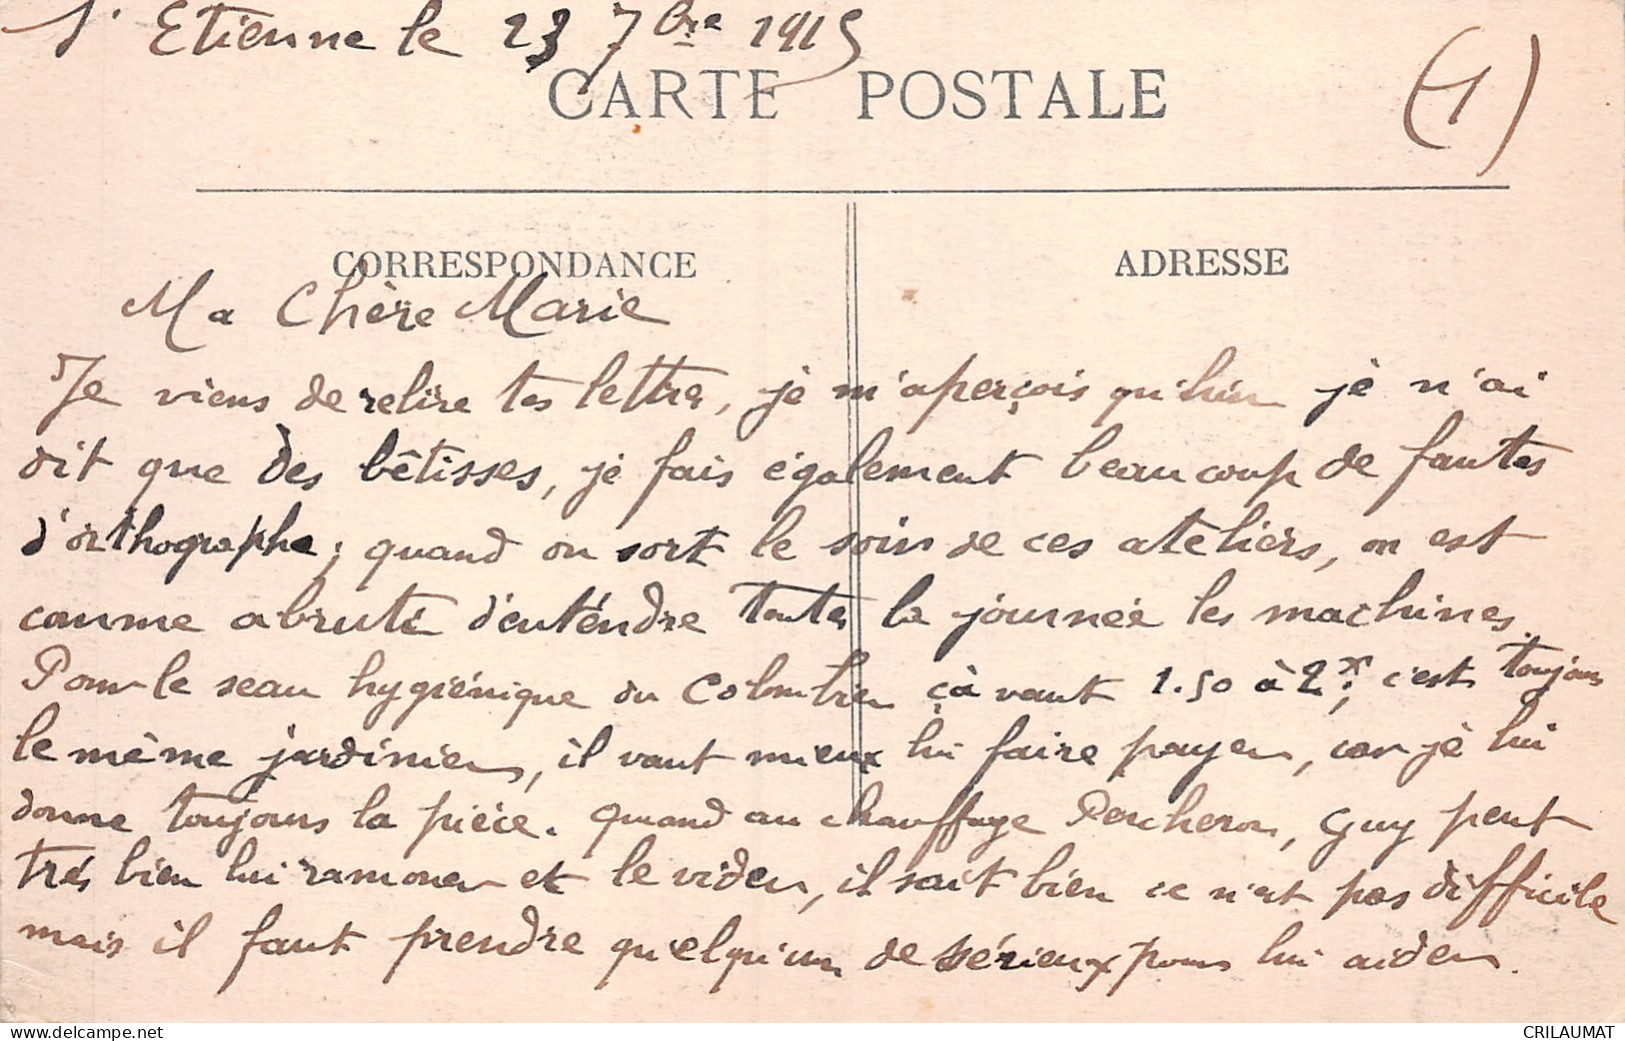 St Etienne le 23 7bre 1915
CARTE POSTALE
(1)
CORRESPONDANCE
ADRESSE
Ma Chère Marie
Je viens de relire tes lettres, je m'aperçois qu'hier je n'ai
dit que des bêtisses, je fais également beaucoup de fautes
d'orthographe; quand on sort le soir de ces ateliers, on est
comme abruti d'entendre toutes la journée les machines.
Pour le seau hygiénique du Colombier çà vaut 1.50 à 2f; c'est toujours
le même jardinier, il vaut mieux lui faire payer, car je lui
donne toujours la pièce. Quand au chauffage Percheron, Guy peut
très bien lui ramoner et le vider, il sait bien ce n'est pas difficile
mais il faut prendre quelqu'un de sérieux pour lui aider.
www.delcampe.net
CRILAUMAT